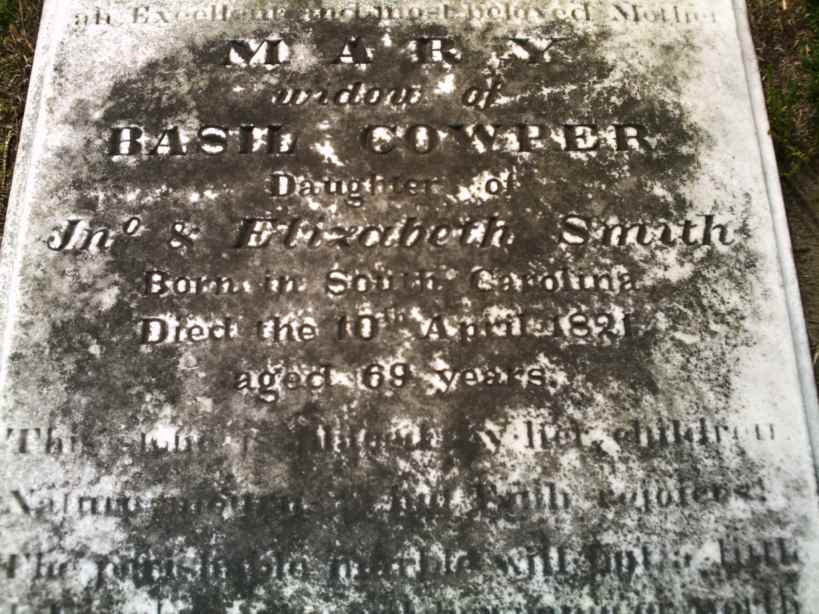 an Excellent and most beloved Mother
MARY
widow of
BASIL COWPER
Daughter of
Jnº & Elizabeth Smith
Born in South Carolina
Died the 10th April 1821
aged 69 years
This stone is placed by her children
Nature mourns but Faith rejoices
The perishable marble will but a little